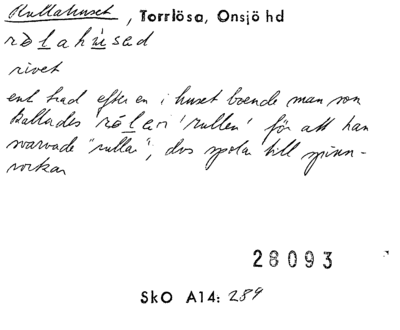 Rullahuset, Torrlösa, Onsjö hd
ròlahùsed
rivet
enl trad efter en i huset boende man som
kallades 'rólen' 'rullen' för att han
svarvade "rullar", dvs spolar till spinn-
rockar
28093
SkO A14: 289